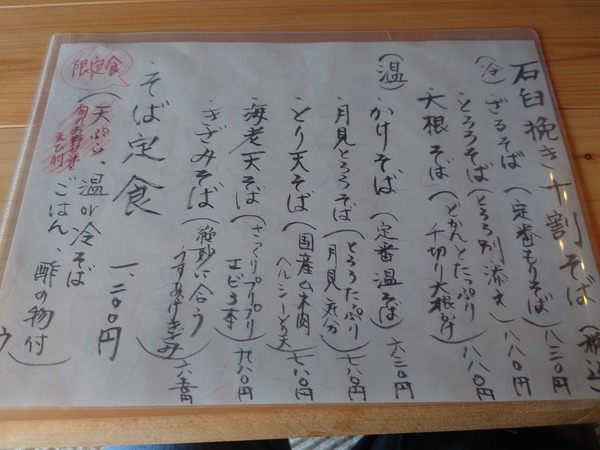 石臼挽き十割そば (税込)
(冷)
ざるそば (定番もりそば) 八三〇円
とろろそば (とろろ別添え) 八八〇円
大根そば (どかんとたっぷり千切り大根かけ) 八八〇円
(温)
かけそば (定番温そば) 六三〇円
月見とろろそば (とろろたっぷり月見気分) 七八〇円
とり天そば (国産ムネ肉ヘルシーとり天) 七八〇円
海老天そば (さっくりプリプリエビ3本) 九八〇円
きざみそば (絶妙に合ううすあげきざみ) 六八〇円
限定食
そば定食 一、二〇〇円
(天ぷら、温or冷そば
ごはん、酢の物付)
旬のお野菜と
えび付